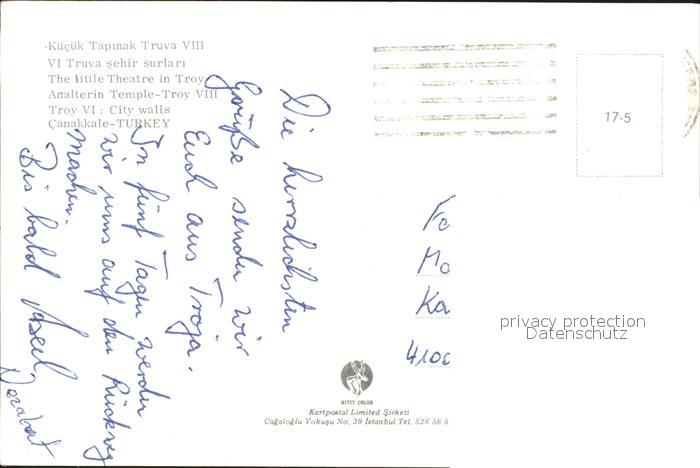 Küçük Tapınak Truva VIII
VI Truva şehir surları
The little Theatre in Troy
Analterin Temple-Troy VIII
Troy VI : City walls
Çanakkale-TURKEY
Die herzlichsten
Grüße senden wir
Euch aus Troja.
In fünf Tagen werden
wir uns auf den Rückweg
machen.
Bis bald
17-5
Fa
Mo
Ka
4100
privacy protection
Datenschutz
HITIT COLOR
Kartpostal Limited Şirketi
Cağaloğlu Yokuşu No. 39 İstanbul Tel. 526 56 5